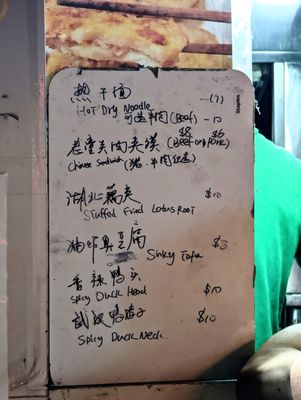 热干面 —(7)
Hot Dry Noodle
牛肉 (Beef) —10
$8 $6
肉夹馍 (Beef or Pork)
Chinese Sandwich (猪.牛肉
湖北藕夹 $10
Stuffed Fried Lotus Root
臭豆腐 $8
Sinky Tofu
香辣鸭头
Spicy Duck Head $10
武汉鸭脖子 $10
Spicy Duck Neck
Staples